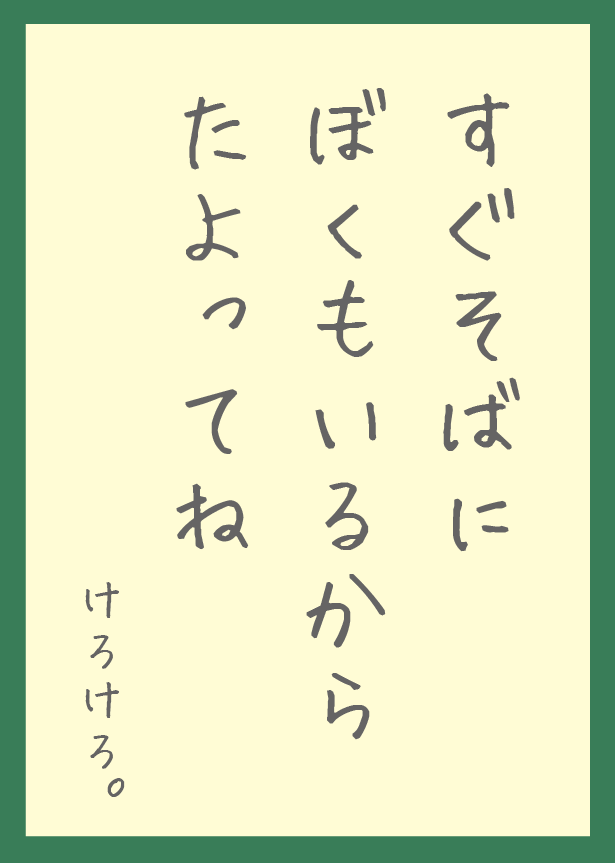 すぐそばに
ぼくもいるから
たよってね
けろけろ。